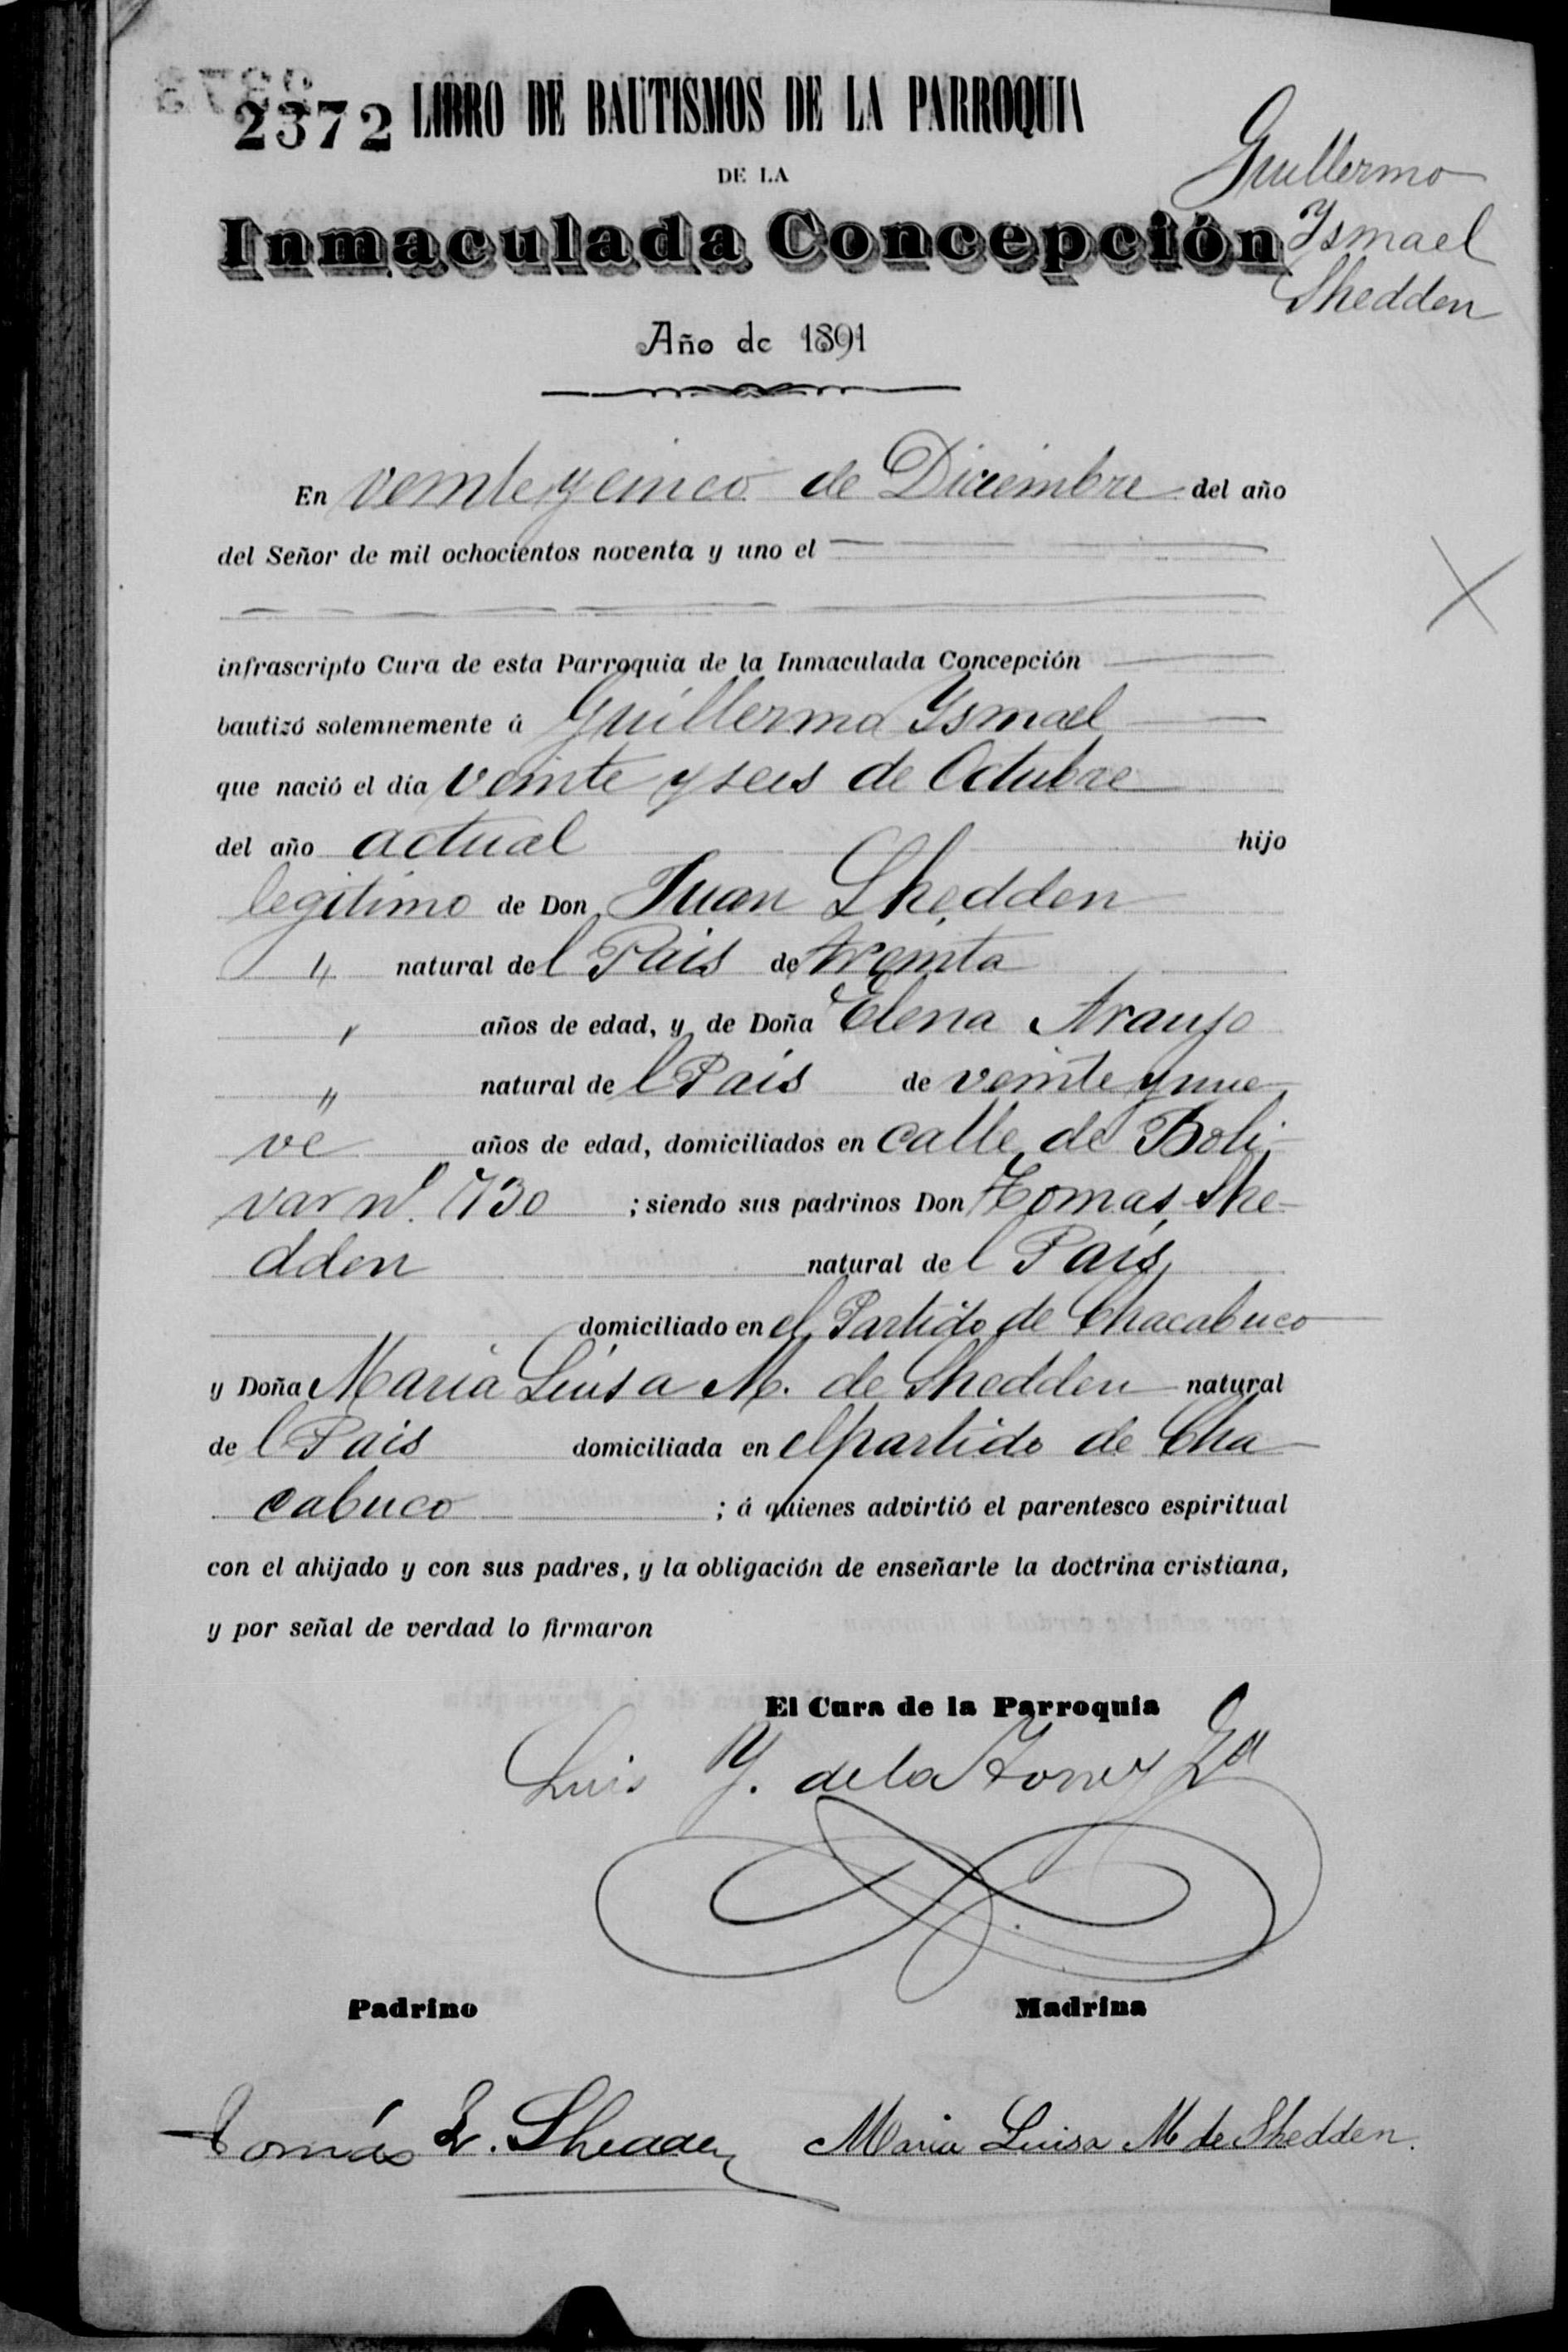 2372 LIBRO DE BAUTISMOS DE LA PARROQUIA
DE LA
Inmaculada Concepción
Guillermo
Ysmael
Shedden
Año de 1891
En veinte y cinco de Diciembre del año
del Señor de mil ochocientos noventa y uno el
infrascripto Cura de esta Parroquia de la Inmaculada Concepción
bautizó solemnemente á Guillermo Ysmael
que nació el día veinte y seis de Octubre
del año actual hijo
legitimo de Don Juan Shedden
" natural del Pais de treinta
" años de edad, y de Doña Elena Araujo
" natural del Pais de veinte y nue
ve años de edad, domiciliados en calle de Boli-
var nº. 1730 ; siendo sus padrinos Don Tomas She-
dden natural del Pais
domiciliado en el Partido de Chacabuco
y Doña Maria Luisa M. de Shedden natural
del Pais domiciliada en el partido de Cha
cabuco ; á quienes advirtió el parentesco espiritual
con el ahijado y con sus padres, y la obligación de enseñarle la doctrina cristiana,
y por señal de verdad lo firmaron
El Cura de la Parroquia
Luis Y. de la Torre y Za
Padrino Madrina
Tomás L. Shedden Maria Luisa M de Shedden.